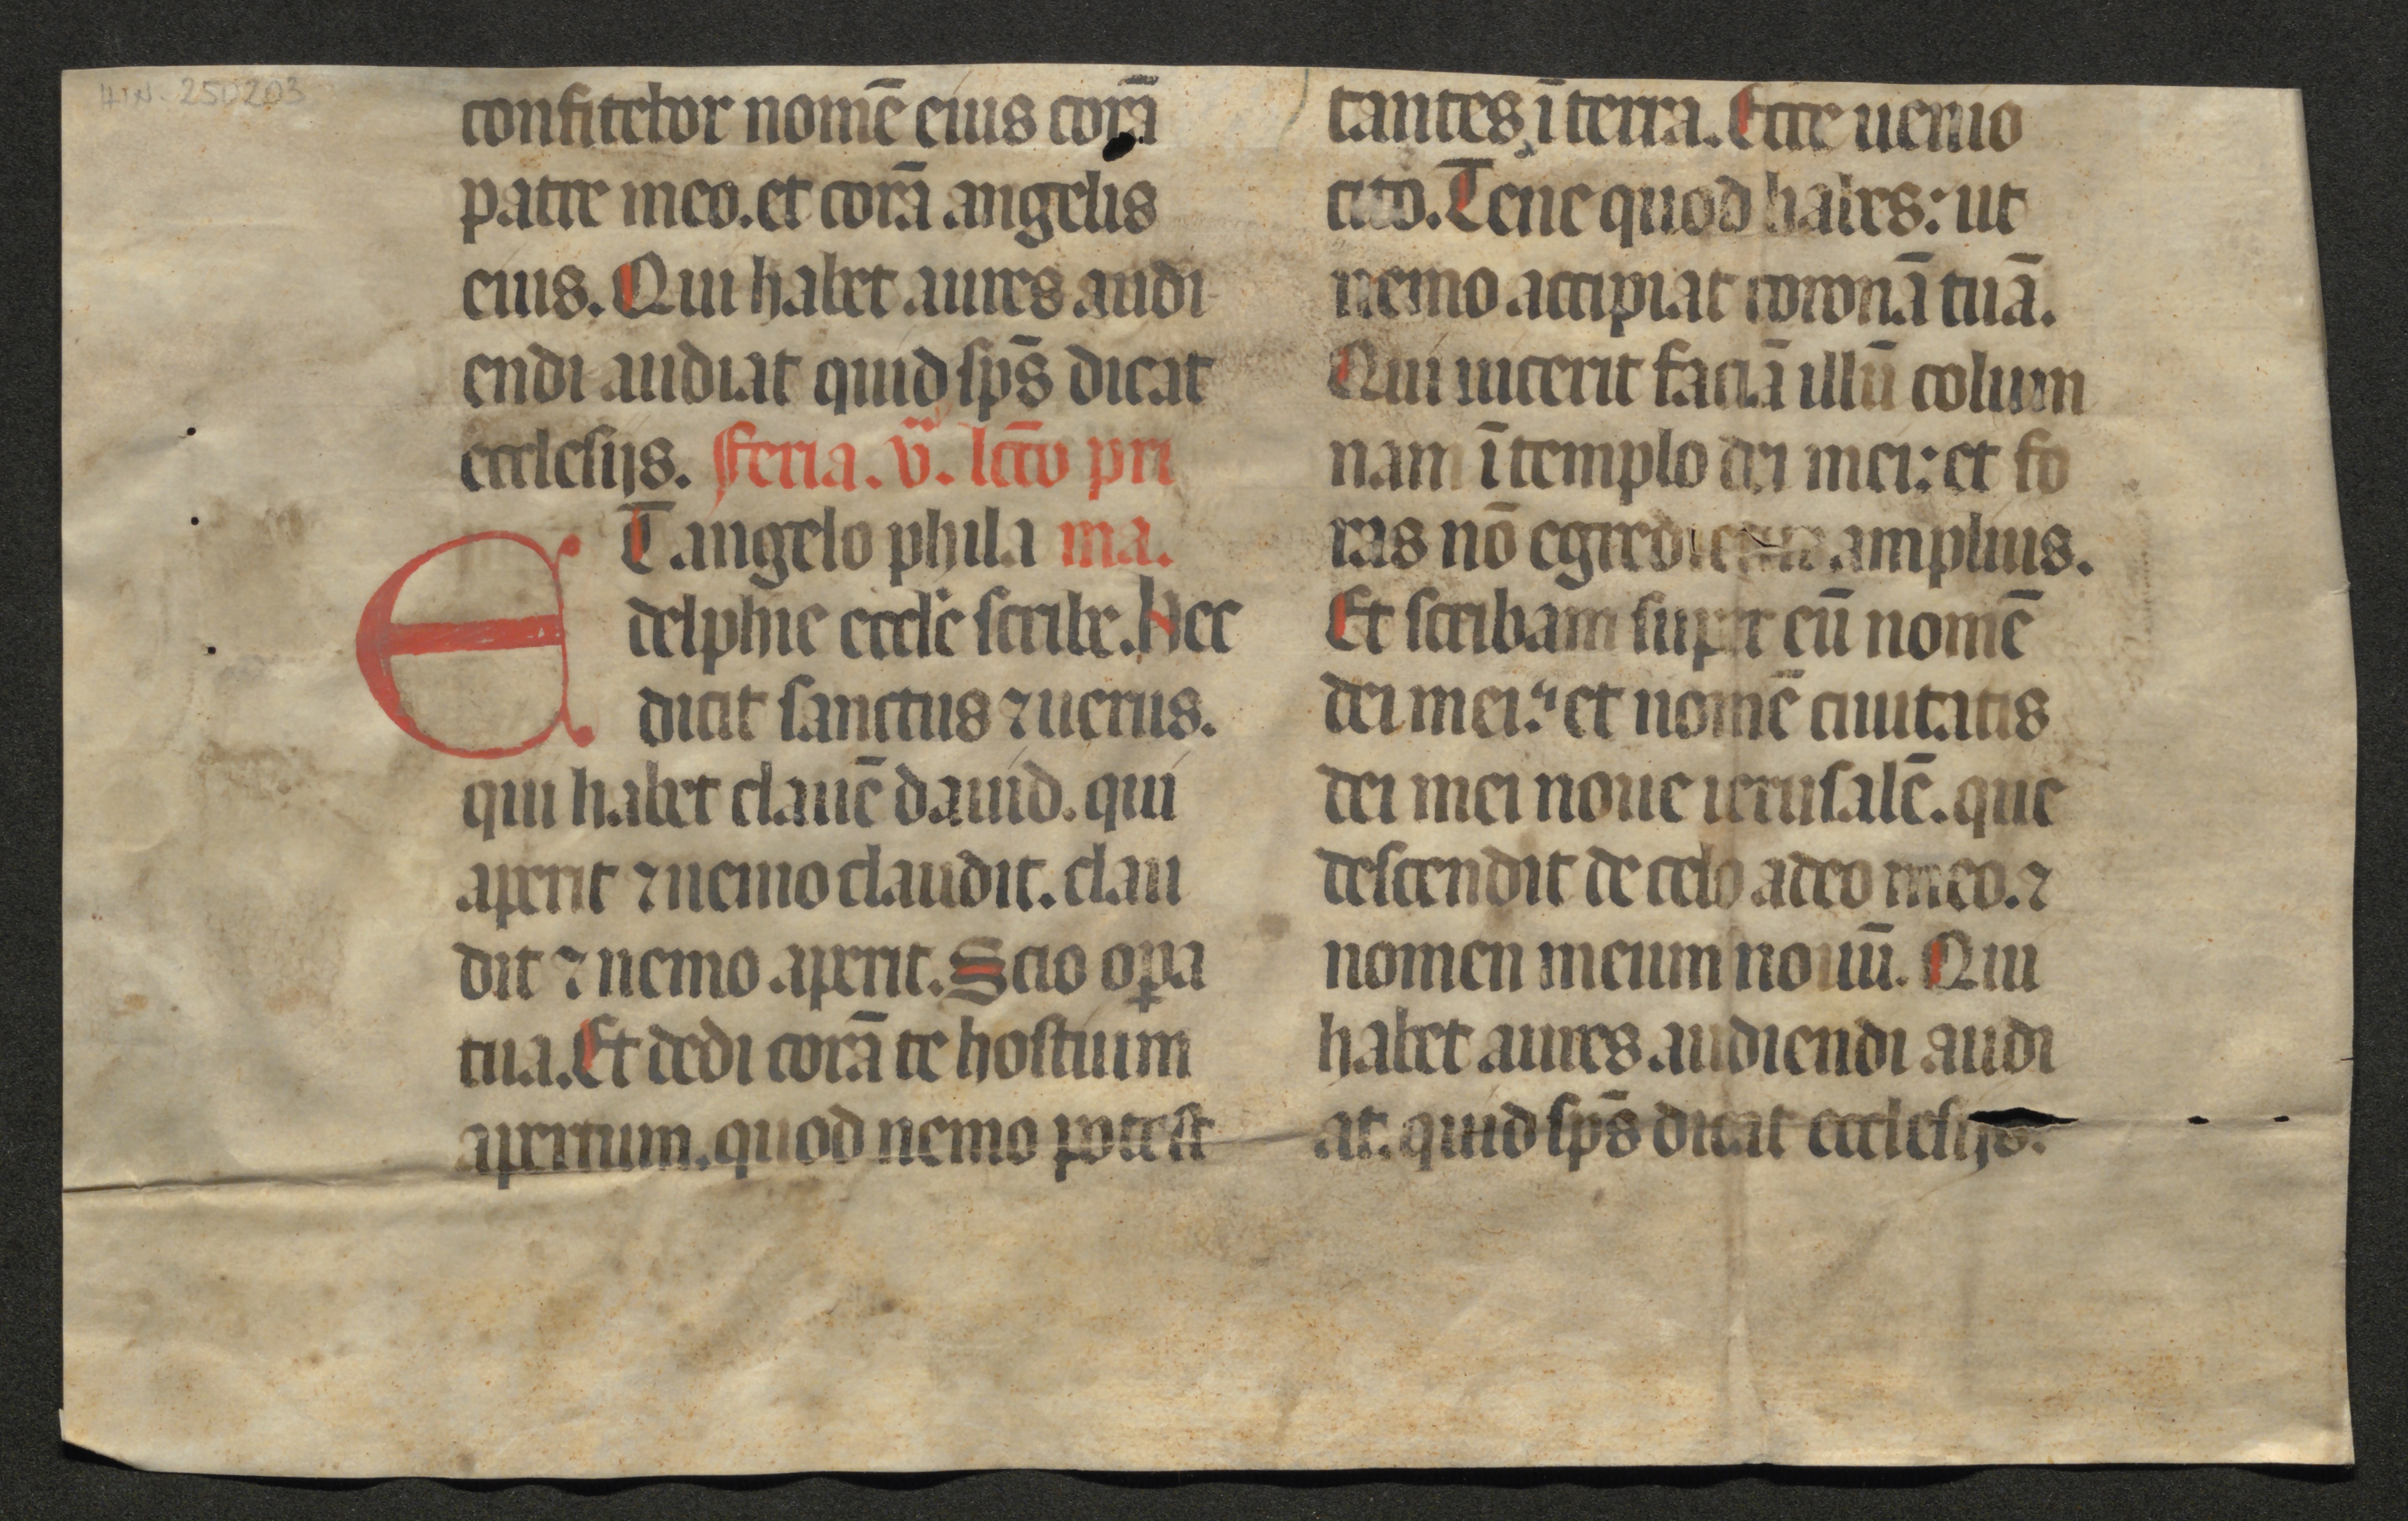 HIN-250203
confitebor nomē eius corā
patre meo. et corā angelis
eius. Qui habet aures audi
endi audiat quid sp̄s dicat
ecclesijs. Feria. v̈. lcō pri
ET angelo phila ma.
delphie eccl̄e scribe. Hec
dicit sanctus ⁊ uerus.
qui habet clauē dauid. qui
aperit ⁊ nemo claudit. clau
dit ⁊ nemo aperit. Scio oꝑa
tua. Et dedi corā te hostium
apertum. quod nemo potest
tantes ī terra. Ecce uenio
cito. Tene quod habes: ut
nemo accipiat coronā tuā.
Qui uicerit faciā illū colum
nam ī templo dei mei: et fo
ras nō egredietur amplius.
Et scribam super eū nomē
dei mei: et nomē ciuitatis
dei mei noue ierusalē. que
descendit de celo a deo meo. ⁊
nomen meum nouū. Qui
habet aures audiendi audi
at. quid sp̄s dicat ecclesijs.